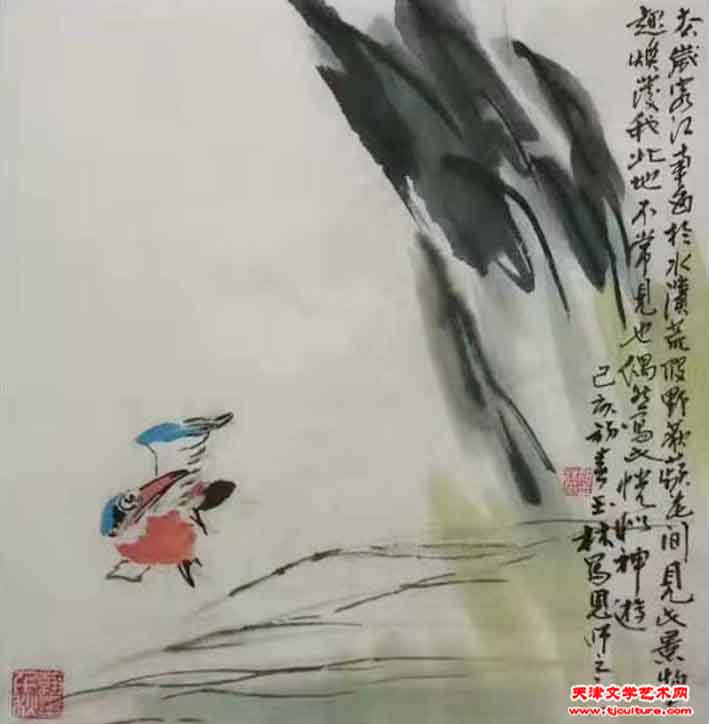 去岁客江南每於水濱荒陂野荻蘋花間見此景物
趣煥發我北地不常見也偶然寫此恍似神遊
己亥初春玉林寫恩師之
天津文学艺术网
www.tjculture.com